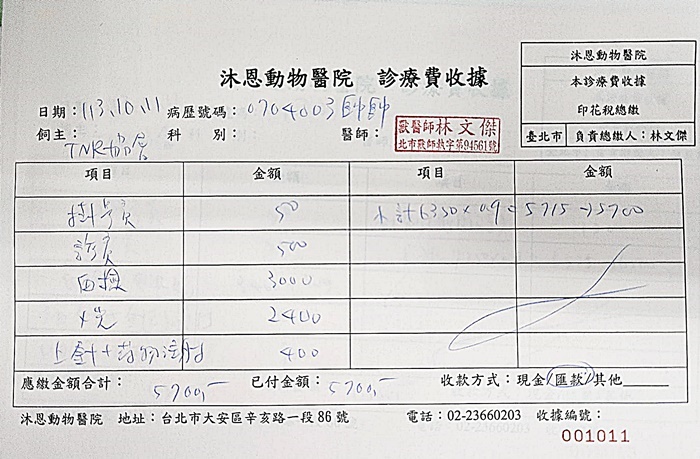 沐恩動物醫院 診療費收據
沐恩動物醫院
本診療費收據
印花稅總繳
臺北市 負責總繳人：林文傑
日期：113.10.11 病歷號碼：0704003帥帥
飼主：TNR協會 科別： 醫師：
獸醫師林文傑
北市獸師執字第94561號
項目 金額 項目 金額
掛號費 50 小計6350×0.9=5715→5700
診費 500
血檢 3000
X光 2400
上針+藥物注射 400
應繳金額合計：5700,- 已付金額：5700,- 收款方式：現金 匯款 其他
沐恩動物醫院 地址：台北市大安區辛亥路一段86號 電話：02-23660203 收據編號：
001011